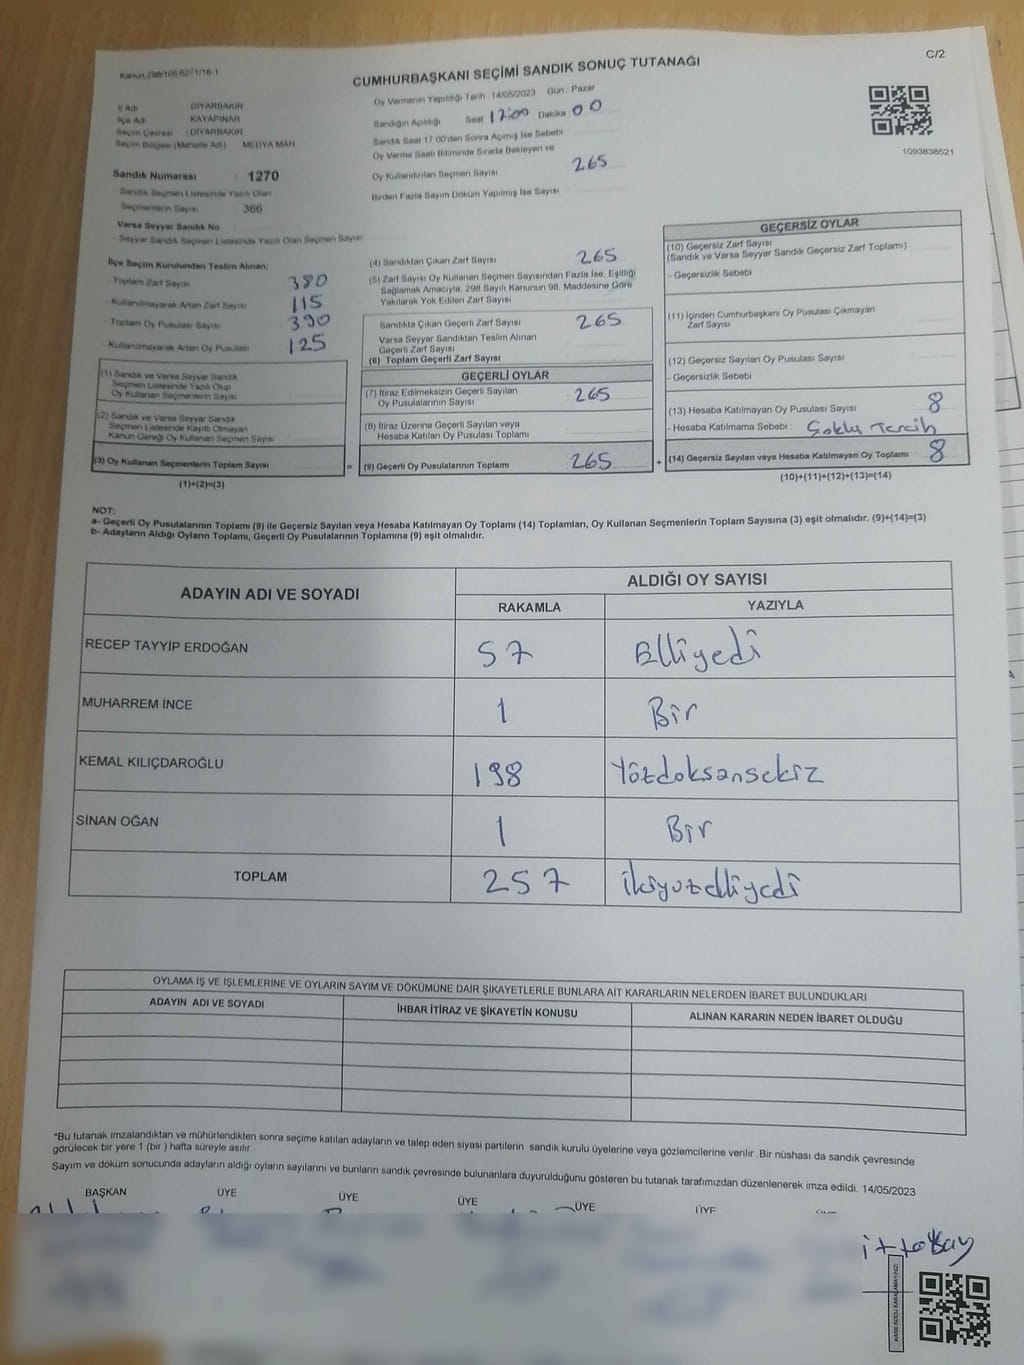 Kanun:298/105,6271/18-1
C/2
CUMHURBAŞKANI SEÇİMİ SANDIK SONUÇ TUTANAĞI
İl Adı DİYARBAKIR
İlçe Adı KAYAPINAR
Seçim Çevresi : DİYARBAKIR
Seçim Bölgesi (Mahalle Adı) MEDYA MAH
Sandık Numarası : 1270
- Sandık Seçmen Listesinde Yazılı Olan
Seçmenlerin Sayısı : 366
Varsa Seyyar Sandık No
- Seyyar Sandık Seçmen Listesinde Yazılı Olan Seçmen Sayısı
Oy Vermenin Yapıldığı Tarih 14/05/2023 Gün : Pazar
Sandığın Açıldığı Saat 17:00 Dakika 00
Sandık Saat 17 00'den Sonra Açılmış İse Sebebi
Oy Verme Saati Bitiminde Sırada Bekleyen ve
Oy Kullandırılan Seçmen Sayısı 265
Birden Fazla Sayım Döküm Yapılmış İse Sayısı
1093638521
İlçe Seçim Kurulundan Teslim Alınan;
- Toplam Zarf Sayısı 380
- Kullanılmayarak Artan Zarf Sayısı 115
- Toplam Oy Pusulası Sayısı 390
- Kullanılmayarak Artan Oy Pusulası 125
(1) Sandık ve Varsa Seyyar Sandık
Seçmen Listesinde Yazılı Olup
Oy Kullanan Seçmenlerin Sayısı
(2) Sandık ve Varsa Seyyar Sandık
Seçmen Listesinde Kayıtlı Olmayan
Kanun Gereği Oy Kullanan Seçmen Sayısı
(3) Oy Kullanan Seçmenlerin Toplam Sayısı
(1)+(2)=(3)
=
(4) Sandıktan Çıkan Zarf Sayısı 265
(5) Zarf Sayısı Oy Kullanan Seçmen Sayısından Fazla İse, Eşitliği
Sağlamak Amacıyla, 298 Sayılı Kanunun 98. Maddesine Göre
Yakılarak Yok Edilen Zarf Sayısı
Sandıkta Çıkan Geçerli Zarf Sayısı 265
Varsa Seyyar Sandıktan Teslim Alınan
Geçerli Zarf Sayısı
(6) Toplam Geçerli Zarf Sayısı
GEÇERLİ OYLAR
(7) İtiraz Edilmeksizin Geçerli Sayılan
Oy Pusulalarının Sayısı 265
(8) İtiraz Üzerine Geçerli Sayılan veya
Hesaba Katılan Oy Pusulası Toplamı
(9) Geçerli Oy Pusulalarının Toplamı 265
+
GEÇERSİZ OYLAR
(10) Geçersiz Zarf Sayısı
(Sandık ve Varsa Seyyar Sandık Geçersiz Zarf Toplamı)
- Geçersizlik Sebebi
(11) İçinden Cumhurbaşkanı Oy Pusulası Çıkmayan
Zarf Sayısı
(12) Geçersiz Sayılan Oy Pusulası Sayısı
- Geçersizlik Sebebi
(13) Hesaba Katılmayan Oy Pusulası Sayısı 8
- Hesaba Katılmama Sebebi : Çoklu Tercih
(14) Geçersiz Sayılan veya Hesaba Katılmayan Oy Toplamı 8
(10)+(11)+(12)+(13)=(14)
NOT:
a- Geçerli Oy Pusulalarının Toplamı (9) ile Geçersiz Sayılan veya Hesaba Katılmayan Oy Toplamı (14) Toplamları, Oy Kullanan Seçmenlerin Toplam Sayısına (3) eşit olmalıdır. (9)+(14)=(3)
b- Adayların Aldığı Oyların Toplamı, Geçerli Oy Pusulalarının Toplamına (9) eşit olmalıdır.
ADAYIN ADI VE SOYADI
ALDIĞI OY SAYISI
RAKAMLA YAZIYLA
RECEP TAYYİP ERDOĞAN 57 Elliyedi
MUHARREM İNCE 1 Bir
KEMAL KILIÇDAROĞLU 198 Yüzdoksansekiz
SİNAN OĞAN 1 Bir
TOPLAM 257 ikiyüzelliyedi
OYLAMA İŞ VE İŞLEMLERİNE VE OYLARIN SAYIM VE DÖKÜMÜNE DAİR ŞİKAYETLERLE BUNLARA AİT KARARLARIN NELERDEN İBARET BULUNDUKLARI
ADAYIN ADI VE SOYADI İHBAR İTİRAZ VE ŞİKAYETİN KONUSU ALINAN KARARIN NEDEN İBARET OLDUĞU
*Bu tutanak imzalandıktan ve mühürlendikten sonra seçime katılan adayların ve talep eden siyasi partilerin sandık kurulu üyelerine veya gözlemcilerine verilir .Bir nüshası da sandık çevresinde
görülecek bir yere 1 (bir ) hafta süreyle asılır.
Sayım ve döküm sonucunda adayların aldığı oyların sayılarını ve bunların sandık çevresinde bulunanlara duyurulduğunu gösteren bu tutanak tarafımızdan düzenlenerek imza edildi. 14/05/2023
BAŞKAN ÜYE ÜYE ÜYE ÜYE ÜYE
KARE KODU KARALAMAYINIZ!